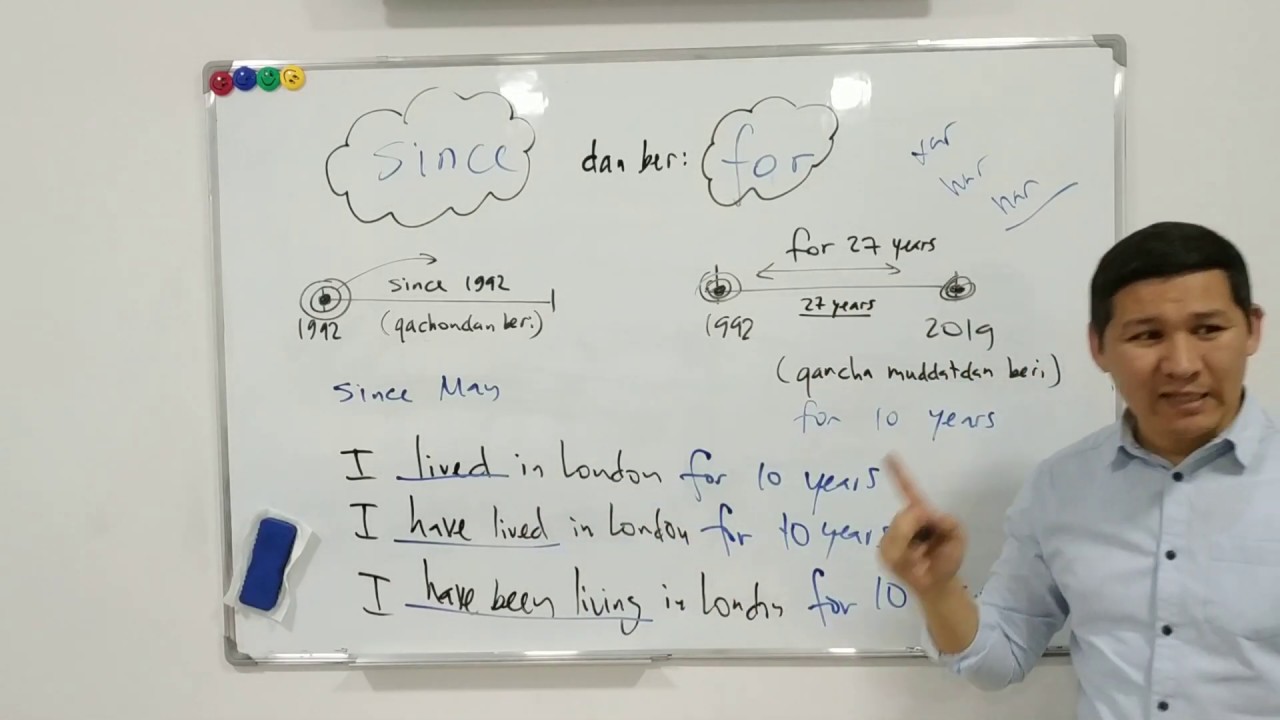 since dan beri for
for 27 years
since 1992
27 years
1992 (qachondan beri) 1992 2019
(qancha muddatdan beri)
since May
for 10 years
I lived in London for 10 years
I have lived in London for 10 years
I have been living in London for 10